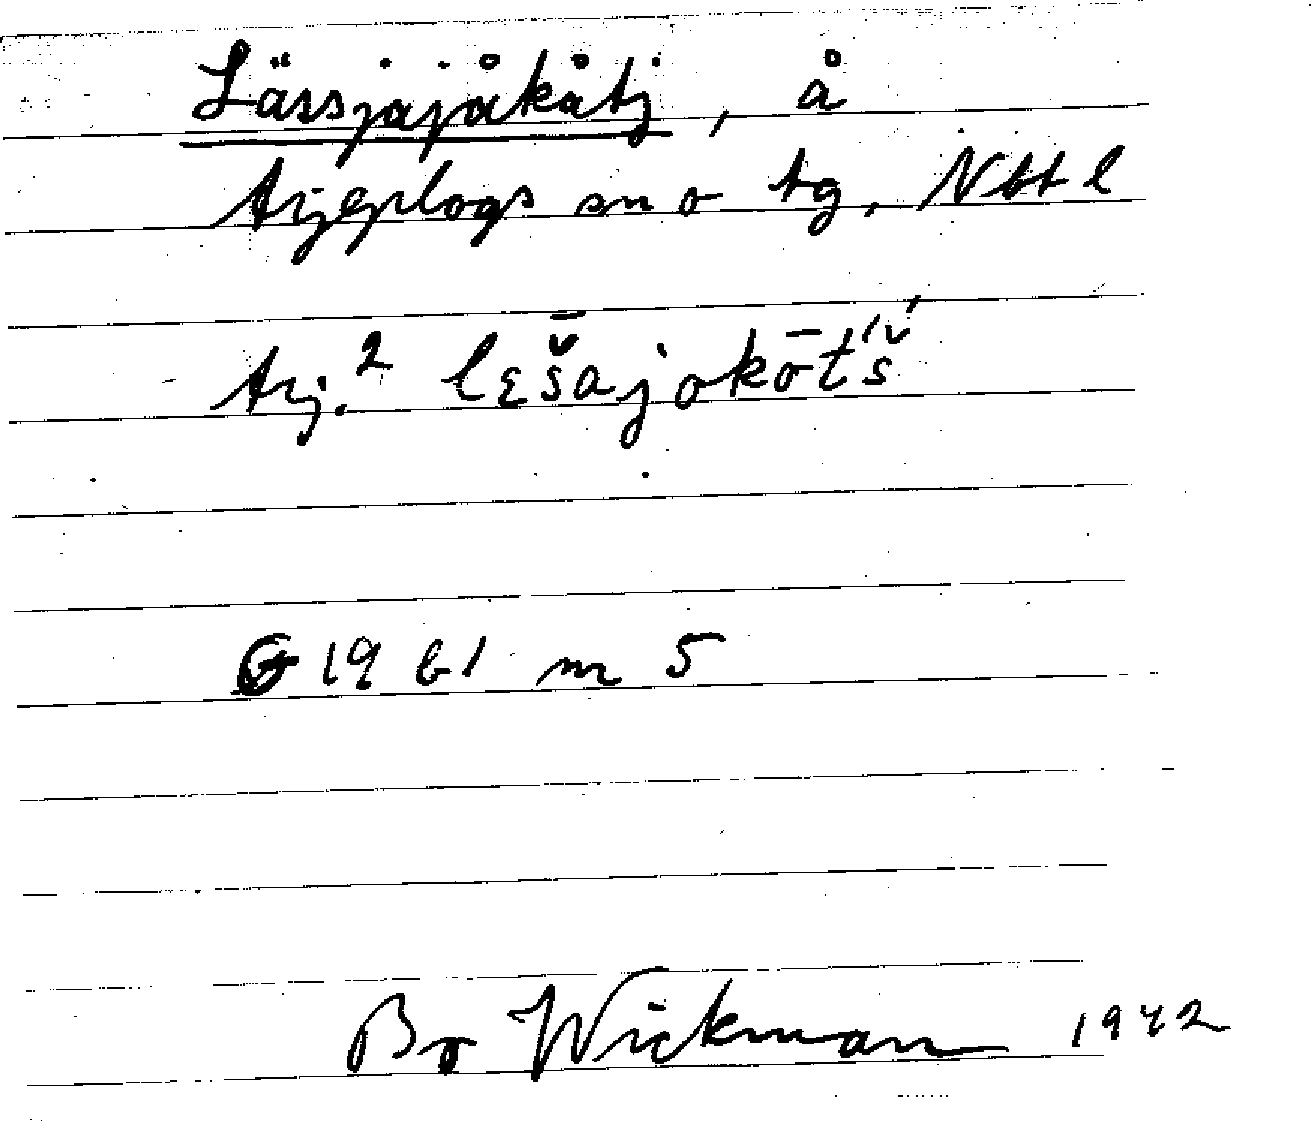 Lässjajåkåtj, å
Arjeplogs sn o tg, Nbt l
Arj.² lɛš̄ajokōt́š́
G 1961 nr 5
Bo Wickman 1942